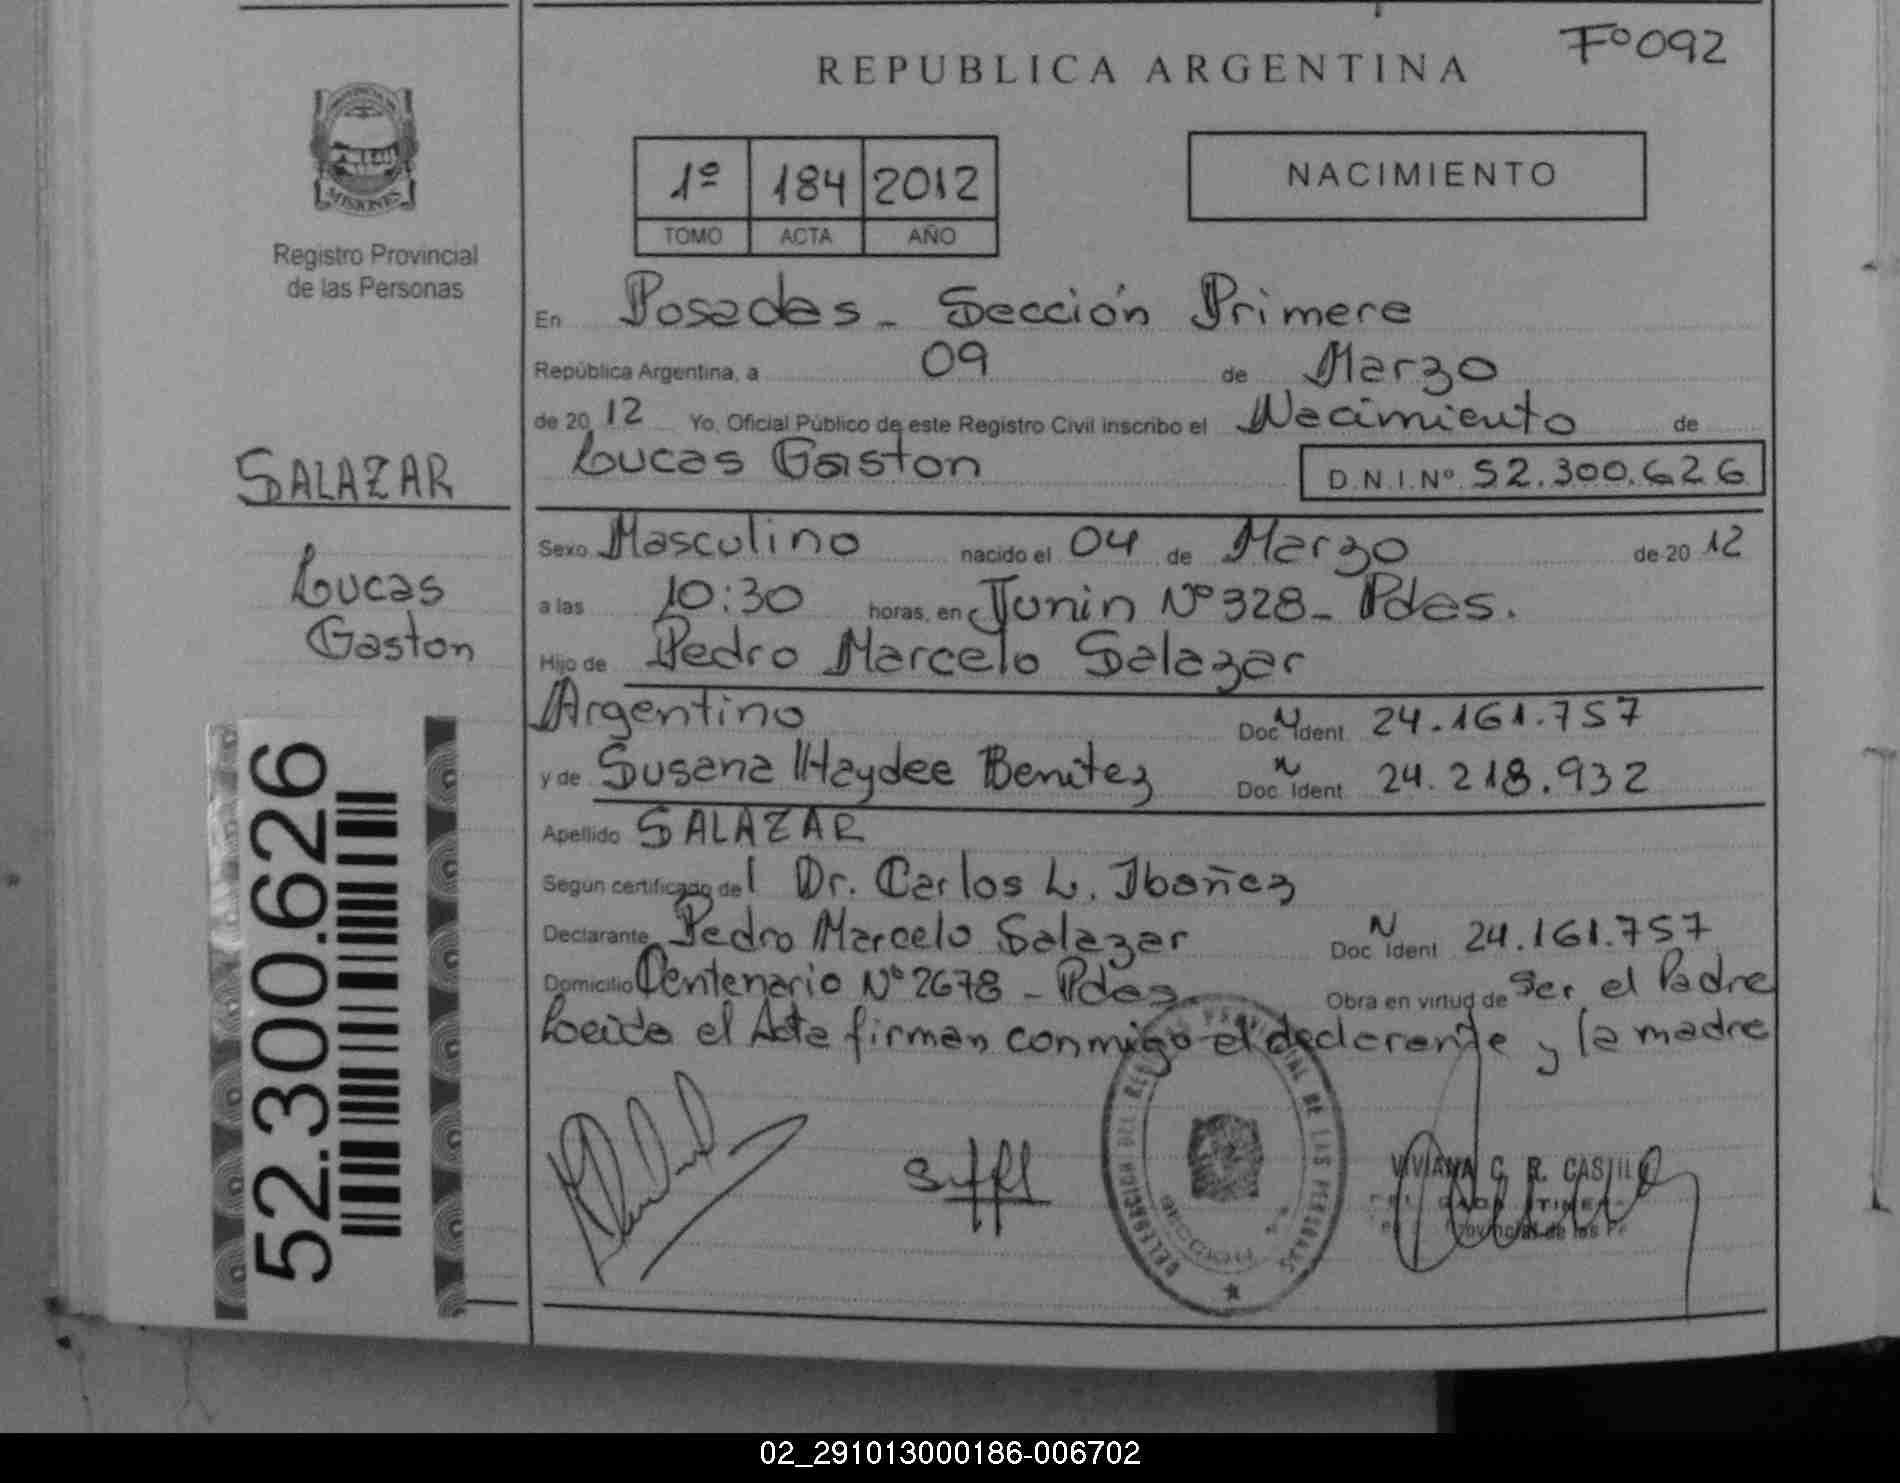 Fº 092
REPUBLICA ARGENTINA
1º 184 2012
TOMO ACTA AÑO
NACIMIENTO
MISIONES
Registro Provincial
de las Personas
En Posadas - Sección Primera
República Argentina, a 09 de Marzo
de 20 12 Yo, Oficial Público de este Registro Civil inscribo el Nacimiento de
Lucas Gaston D.N.I.Nº 52.300.626
SALAZAR
Lucas
Gaston
52.300.626
Sexo Masculino nacido el 04 de Marzo de 20 12
a las 10:30 horas, en Junin Nº 328 - Pdas.
Hijo de Pedro Marcelo Salazar
Argentino Doc N Ident 24.161.757
y de Susana Haydee Benitez Doc N Ident 24.218.932
Apellido SALAZAR
Según certificado del Dr. Carlos L. Ibañez
Declarante Pedro Marcelo Salazar Doc N Ident 24.161.757
Domicilio Centenario Nº 2678 - Pdas. Obra en virtud de Ser el Padre
Leida el Acta firman conmigo el declarante y la madre
DELEGACION DEL REG. PROVINCIAL DE LAS PERSONAS
VIVIANA C. R. CASTILLO
Provincial de las
02_291013000186-006702